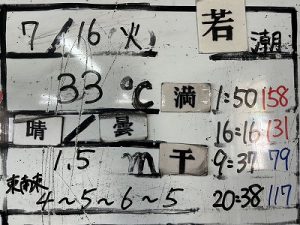 7/16 火 若潮
33℃ 満 1:50 158
晴/曇 16:16 131
1.5m 干 9:37 79
東南東 20:38 117
4~5~6~5